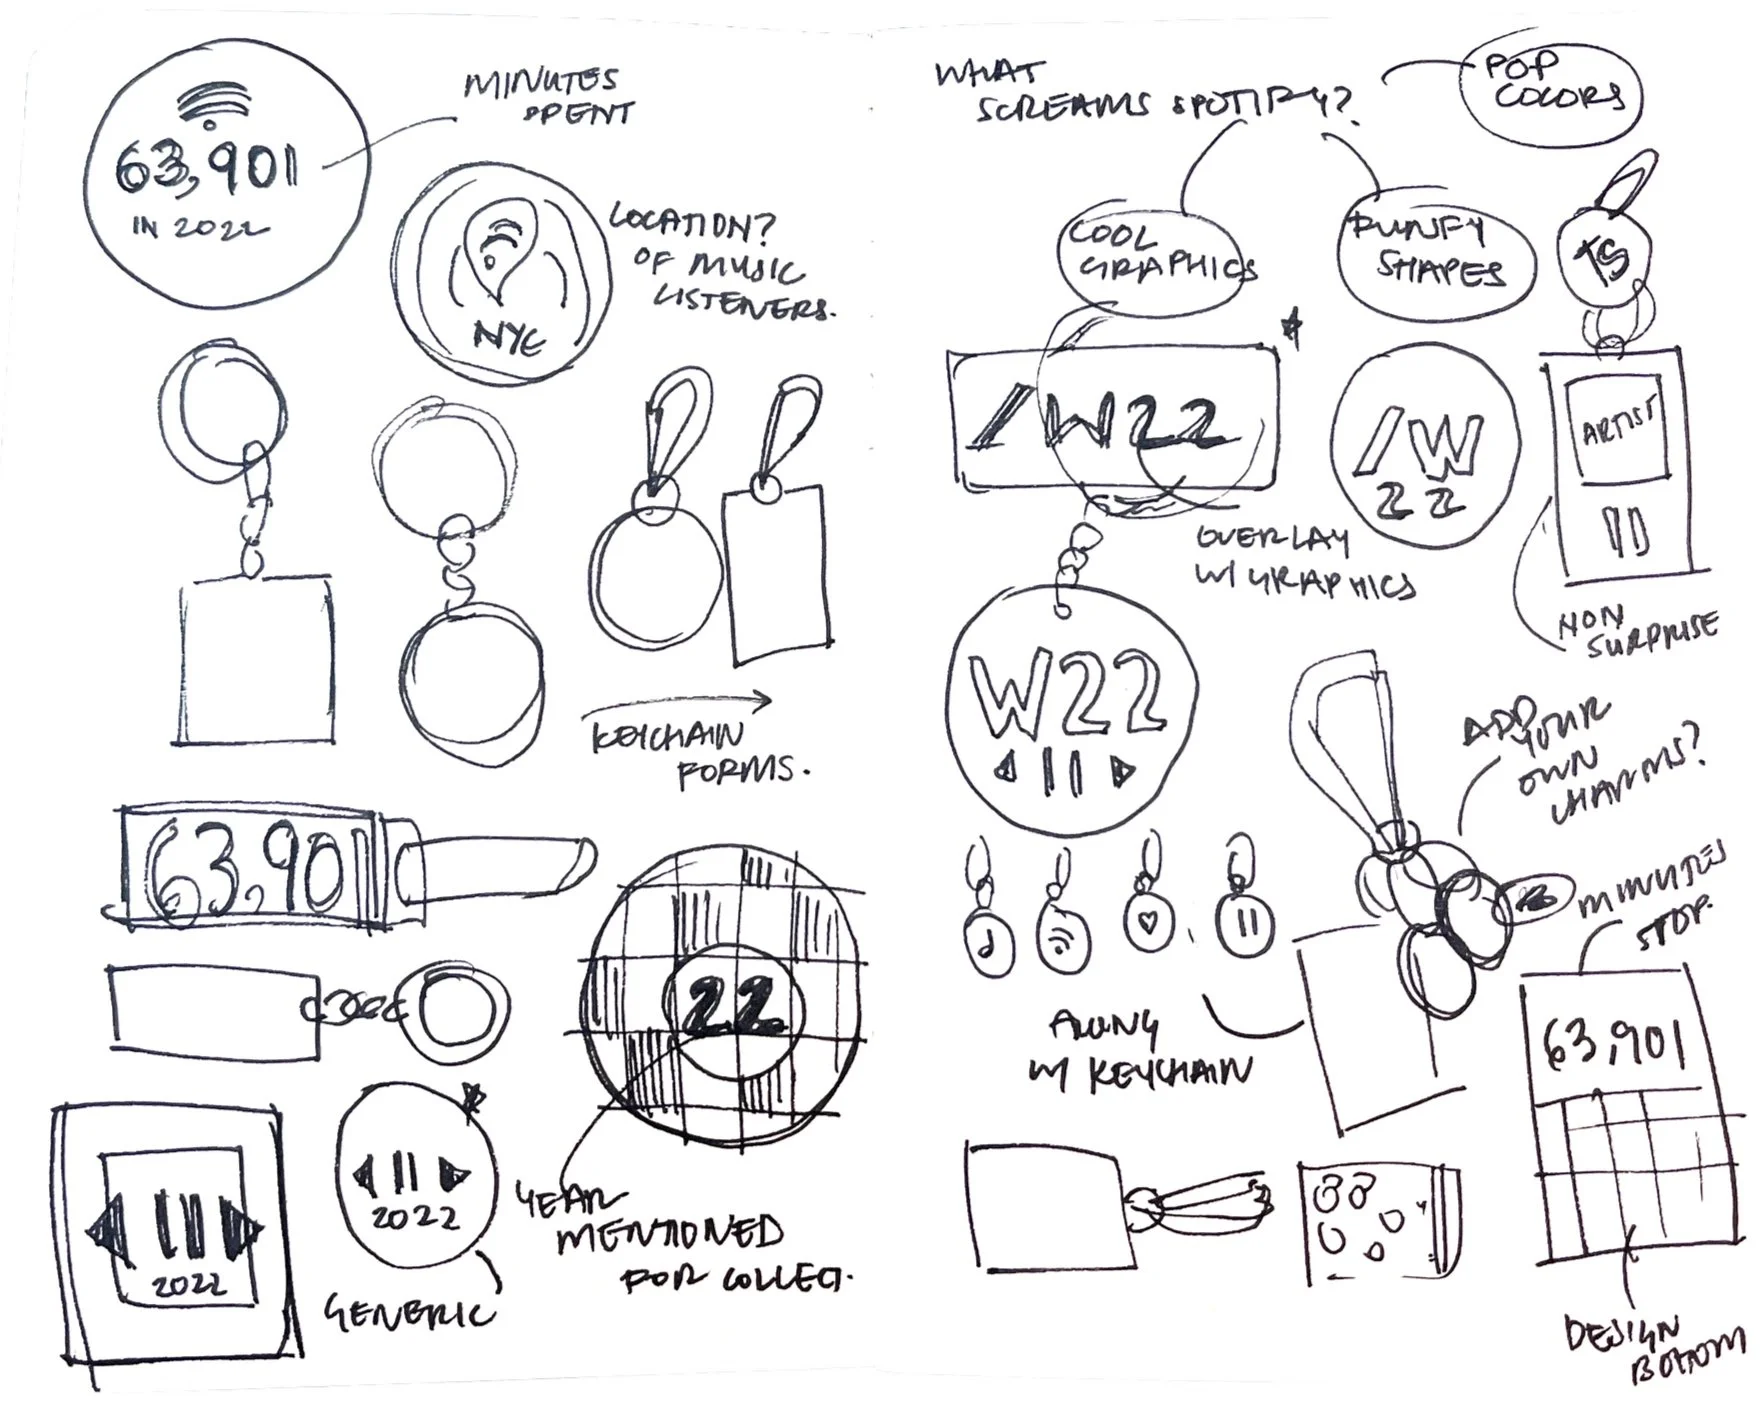 63,901
IN 2022
MINUTES
SPENT
NYC
LOCATION?
OF MUSIC
LISTENERS.
KEYCHAIN
FORMS.
63,901
22
2022
2022
GENERIC
YEAR
MENTIONED
FOR COLLECT.
WHAT
SCREAMS SPOTIFY?
POP
COLORS
COOL
GRAPHICS
FUNKY
SHAPES
TS
/W22
/W
22
ARTIST
OVERLAY
W/ GRAPHICS
NON
SURPRISE
W22
ADD
YOUR
OWN
CHARMS?
MINUTES
STOP.
ALONG
W/ KEYCHAIN
63,901
DESIGN
BOTTOM